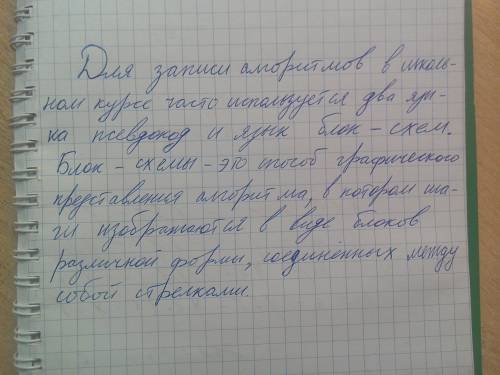 Для записи алгоритмов в школь-
ном курсе часто используется два язы-
ка псевдокод и язык блок-схем.
Блок-схемы - это способ графического
представления алгоритма, в котором ша-
ги изображаются в виде блоков
различной формы, соединённых между
собой стрелками.